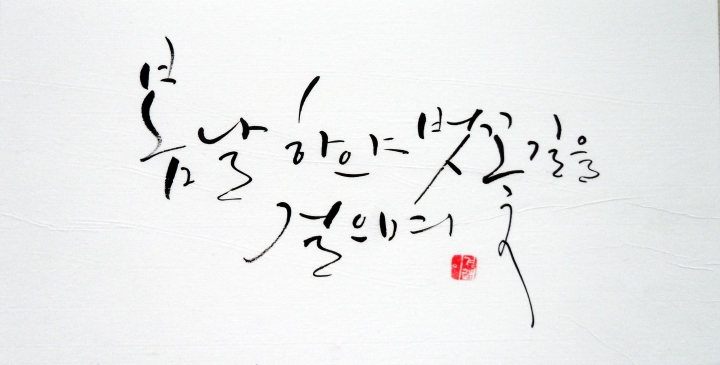 봄날 하얀 벚꽃길을
걸으며